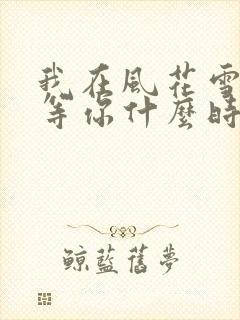 我在風花雪
等你什麼時
鯨藍舊夢